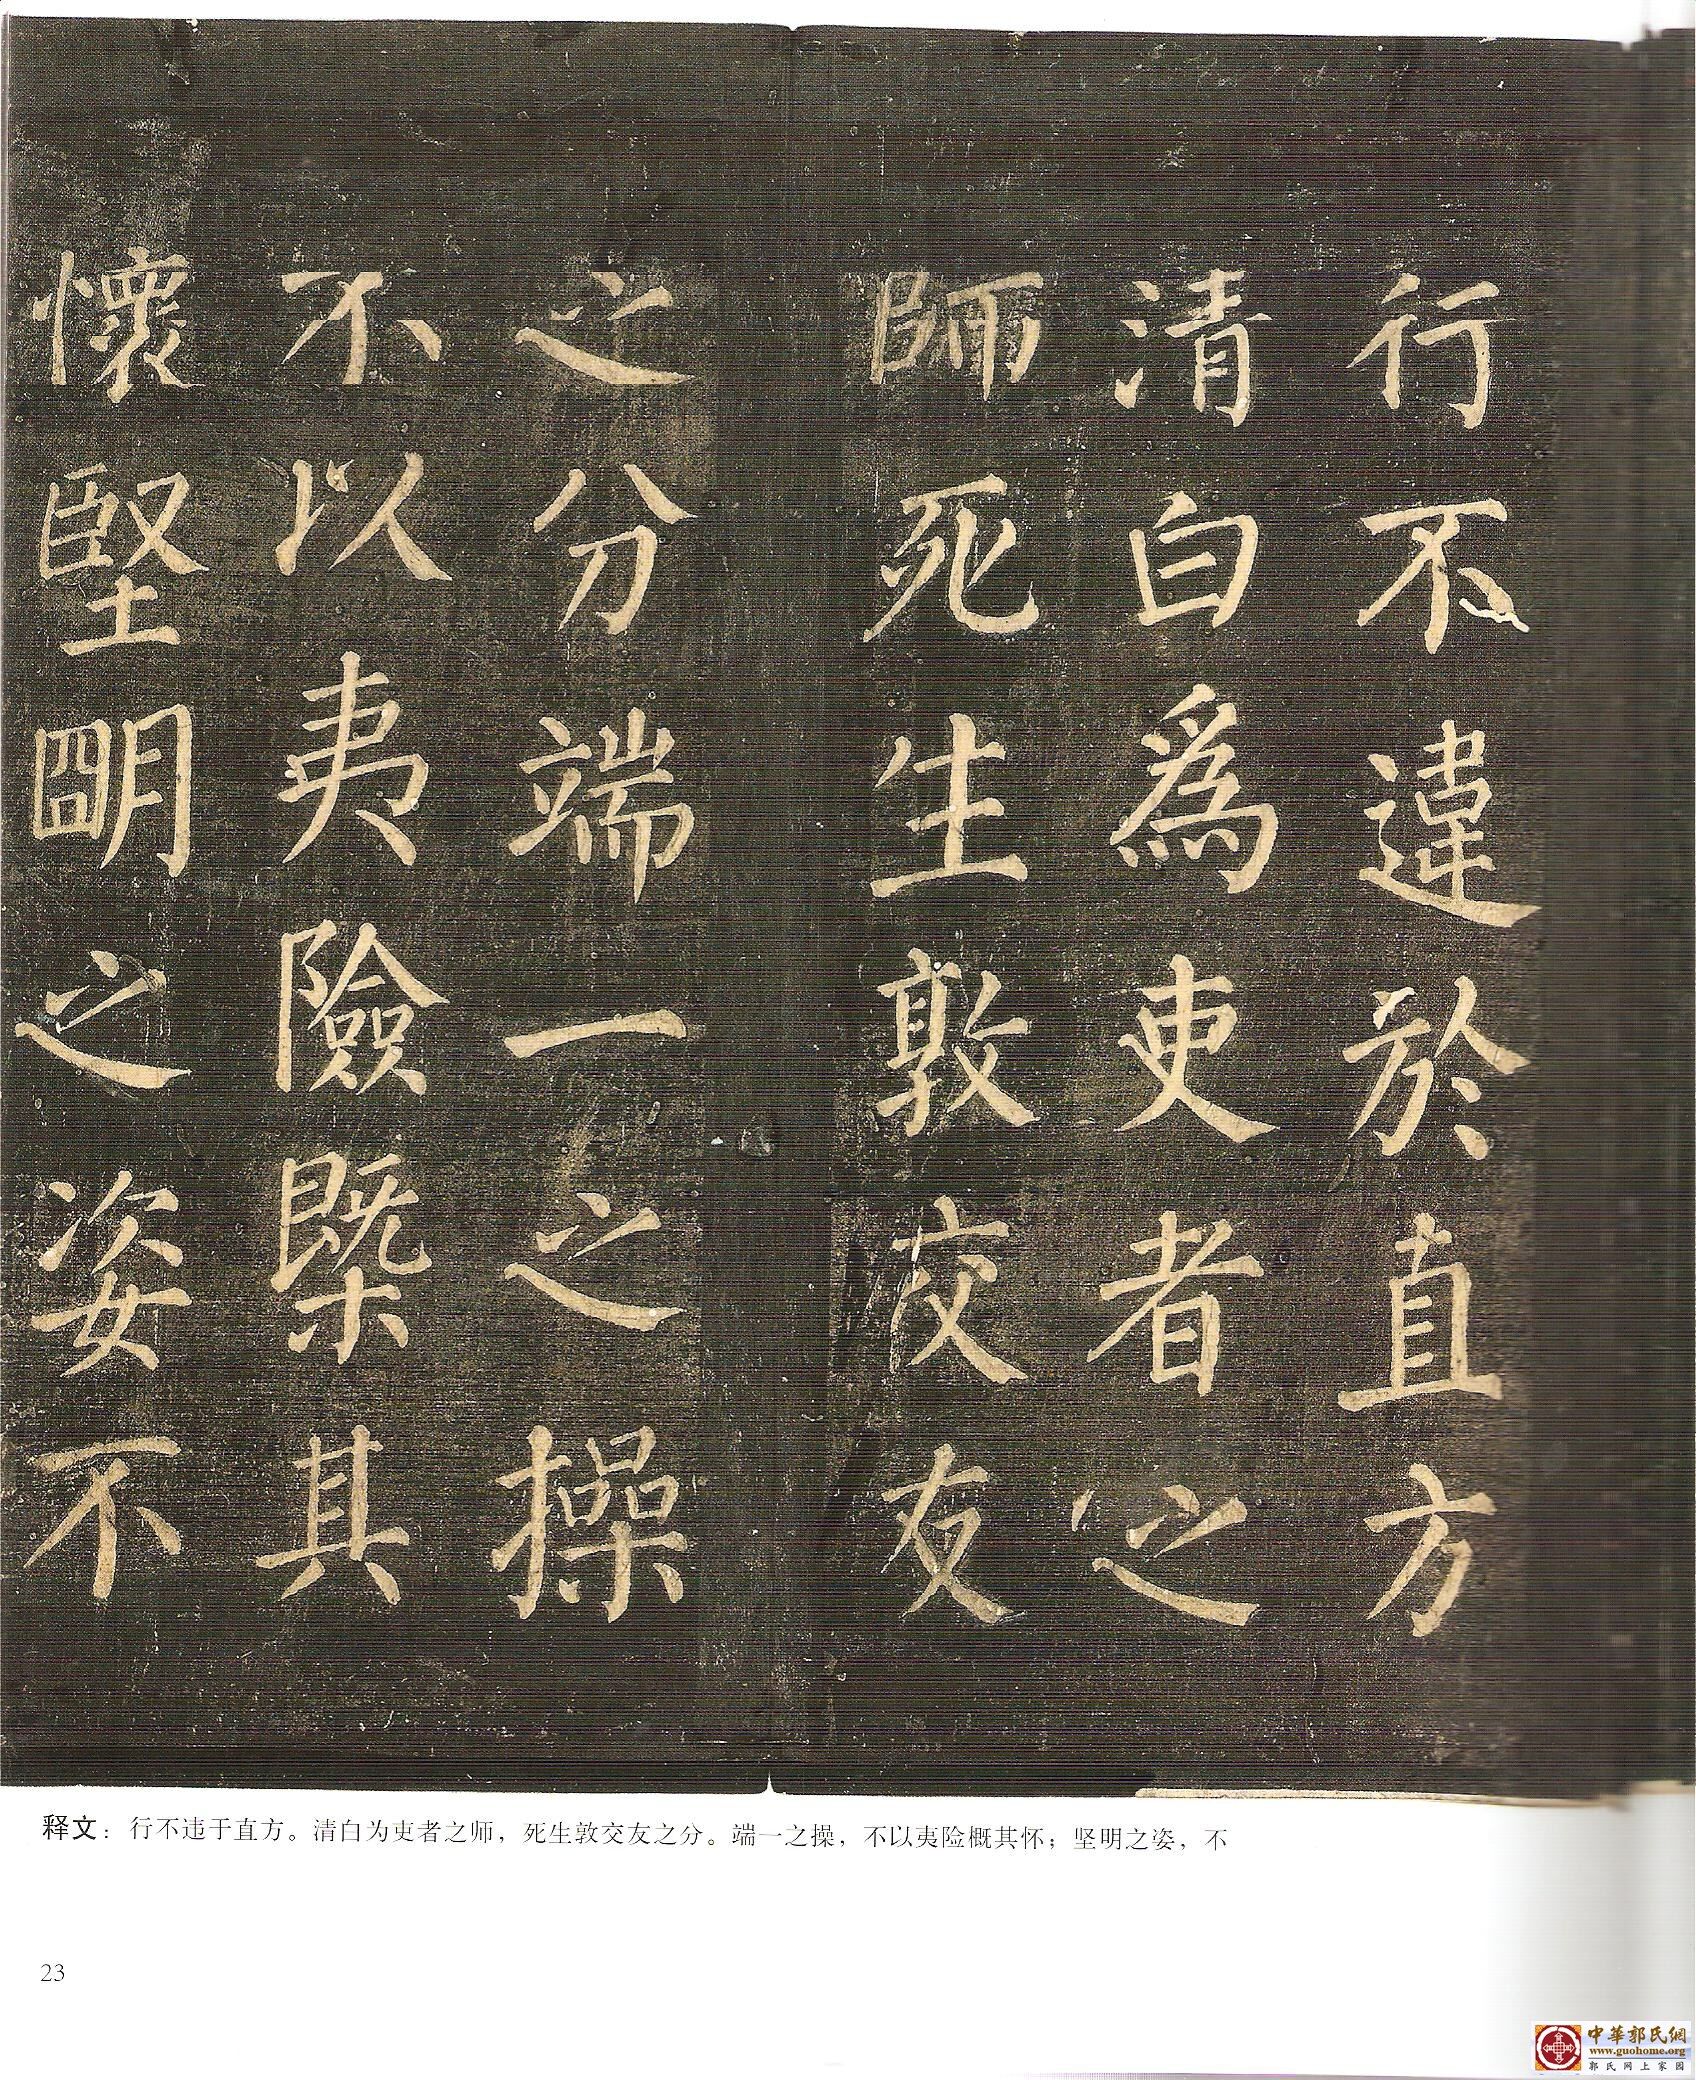 行不違於直方
清白為吏者之
師死生敦交友
之分端一之操
不以夷險概其
懷堅明之姿不
释文：行不违于直方。清白为吏者之师，死生敦交友之分。端一之操，不以夷险概其怀；坚明之姿，不
23
中華郭氏網
www.guohome.org
郭氏网上家园